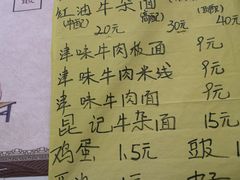 红油牛杂面
(中配) (高配)
20元 30元 40元
津味牛肉板面 9元
津味牛肉米线 9元
津味牛肉面 9元
昆记牛杂面 15元
鸡蛋 1.5元 豆